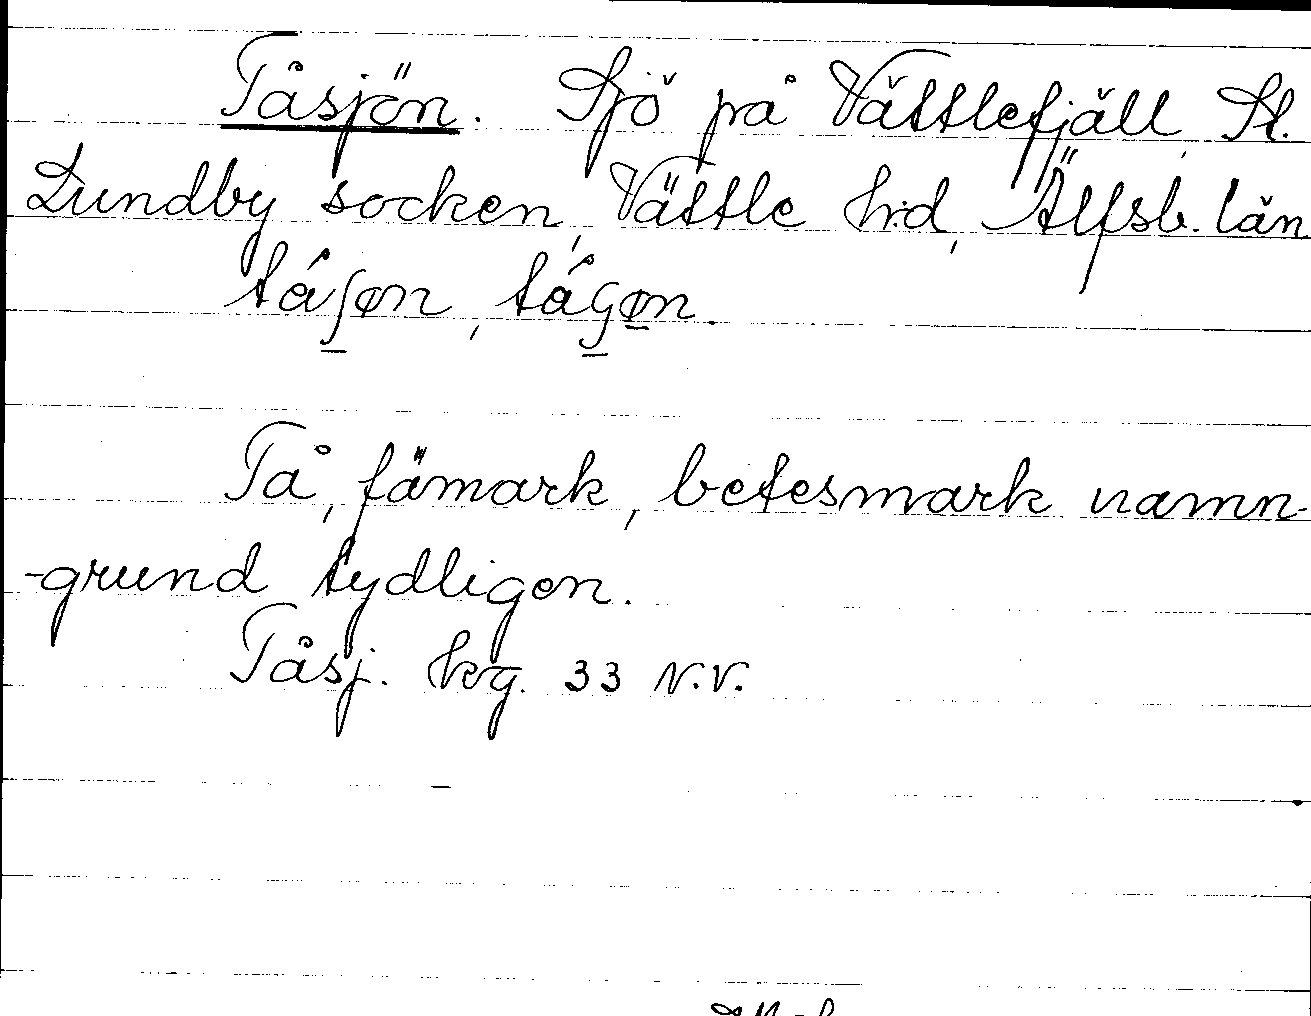 Tåsjön. Sjö på Vättlefjäll, St.
Lundby socken, Vättle h:d, Älfsb. län
tǻʃøn, tǻ
Tå, fämark, betesmark namn-
-grund tydligen.
Tåsj. kg. 33 N.V.